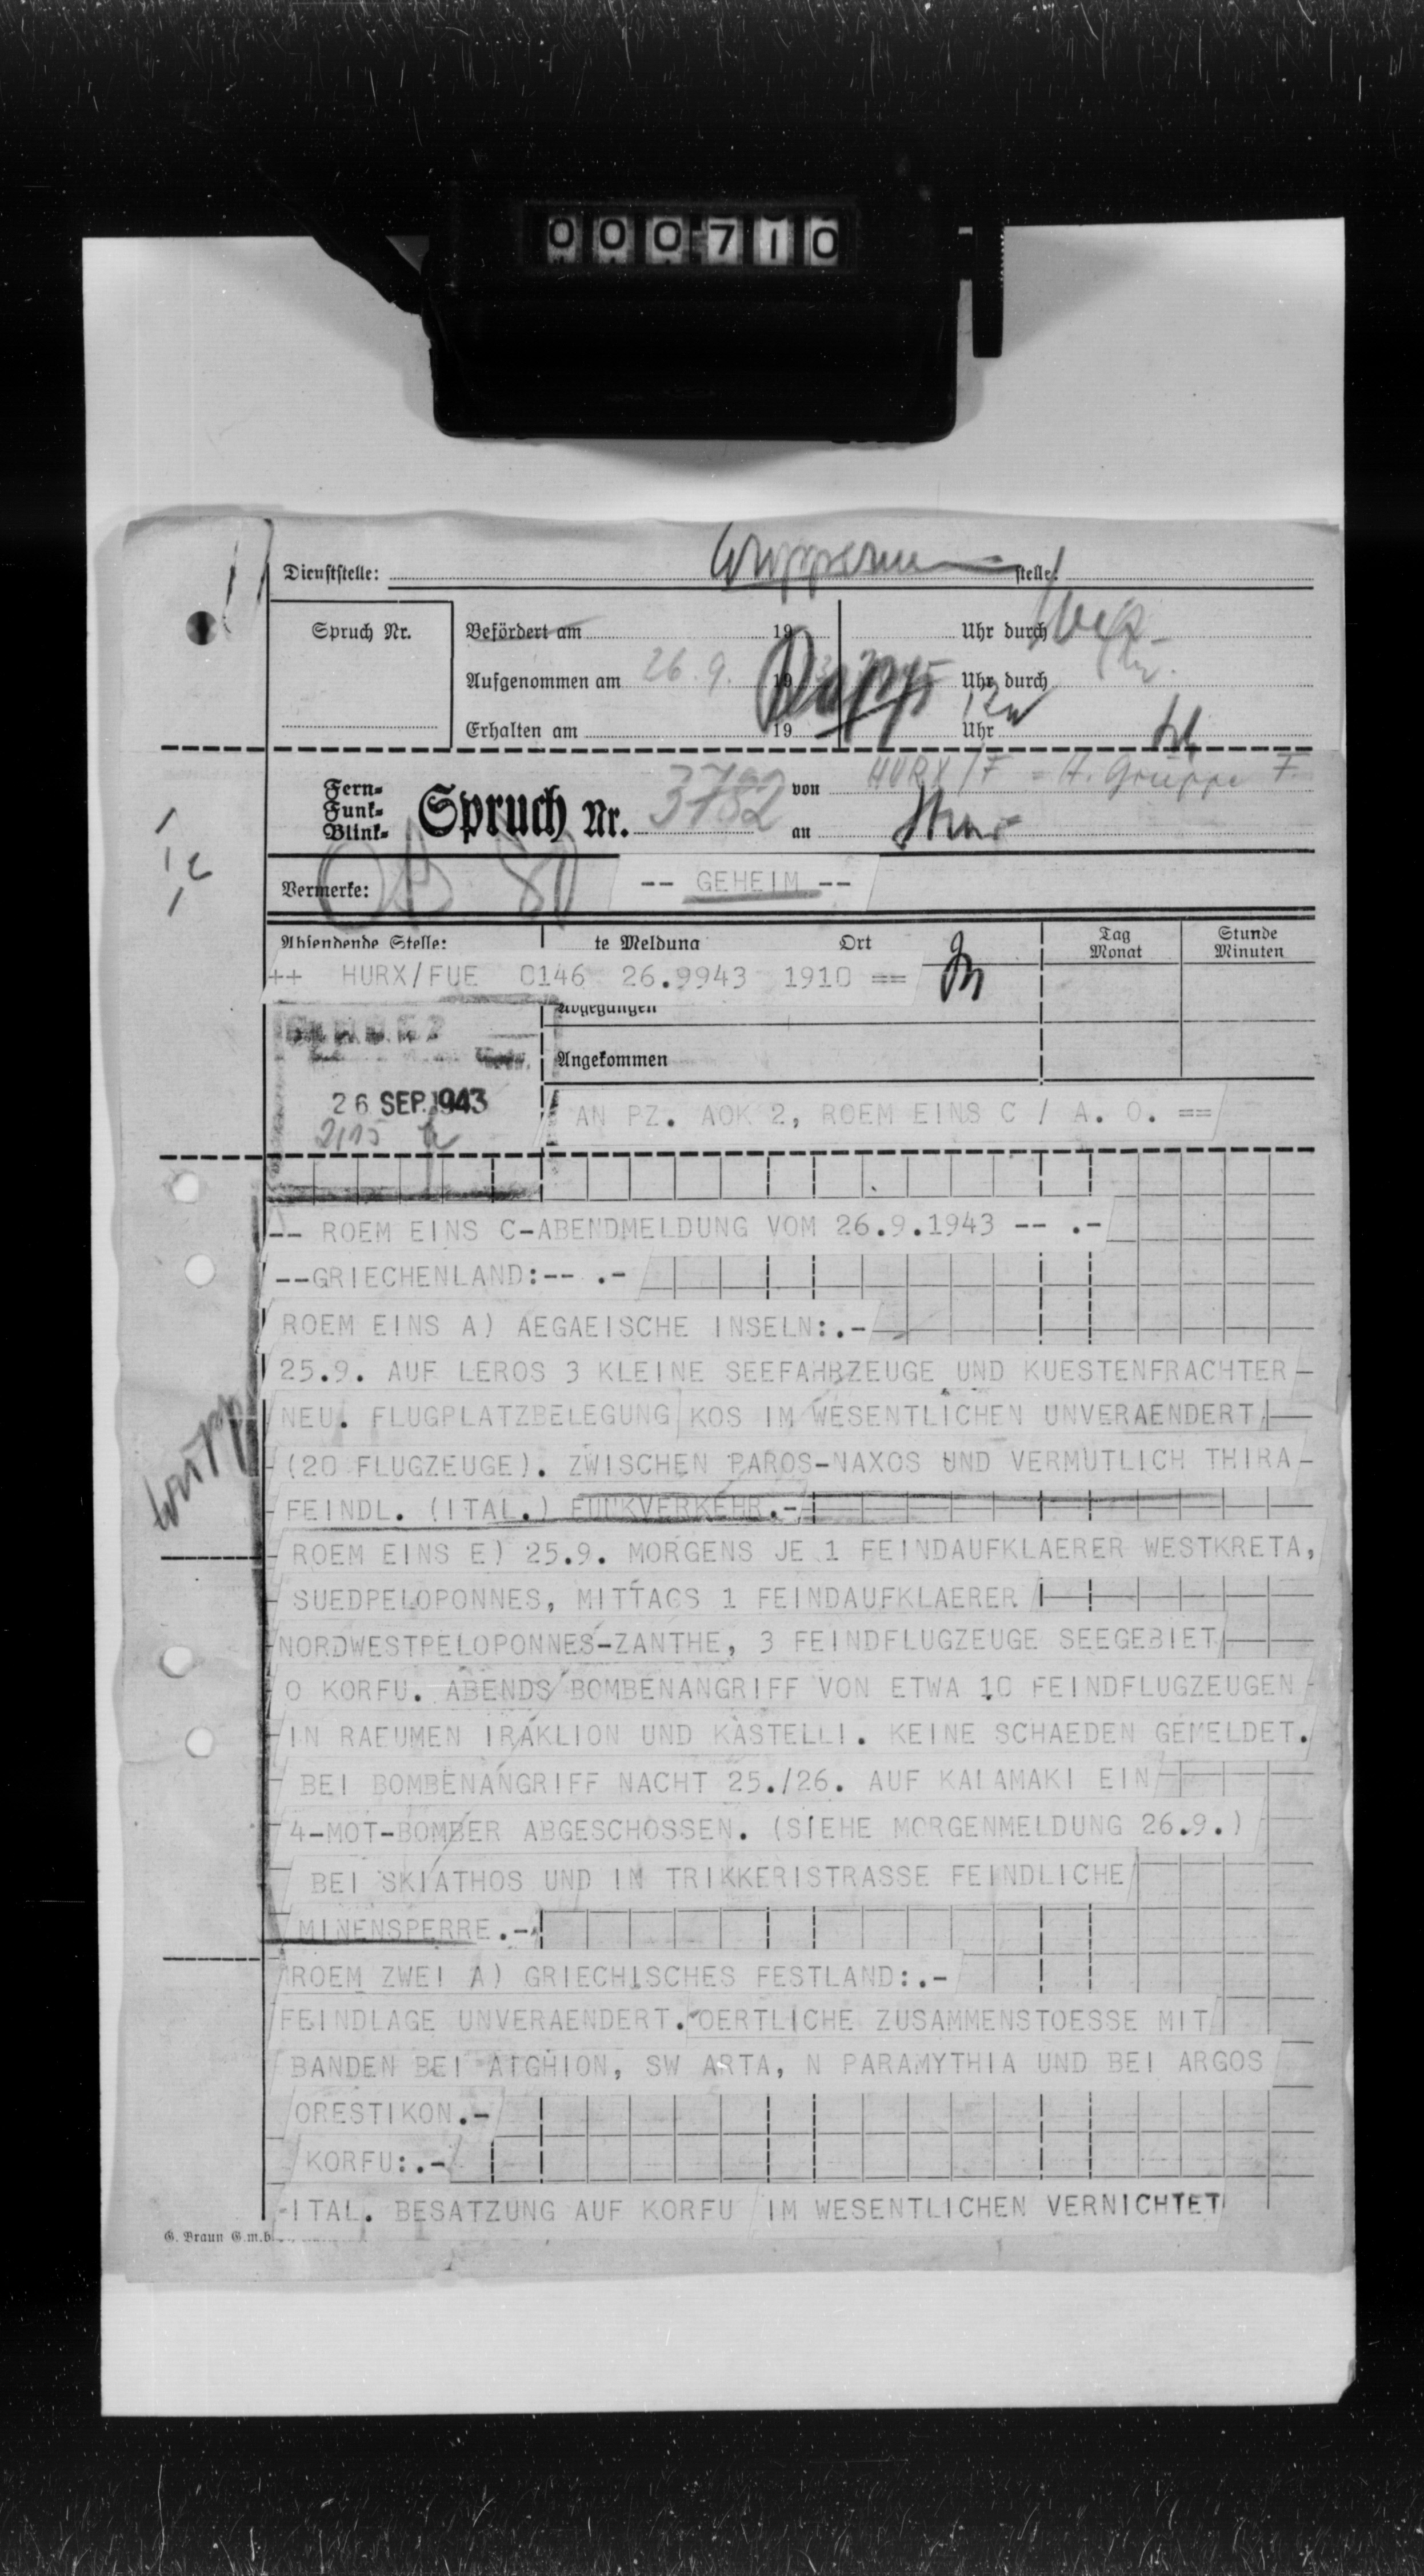 000710
Dienststelle: stelle:
Spruch Nr.
Befördert am 19 Uhr durch
Aufgenommen am 26.9. 19 Uhr durch
Erhalten am 19 Uhr
Fern-
Funk-
Blink-
Spruch Nr. 3782
von HURX/F = H. Gruppe F.
an
Vermerke:
-- GEHEIM --
Absendende Stelle: te Meldung Ort Tag Monat Stunde Minuten
++ HURX/FUE 0146 26.9943 1910 ==
Abgegangen
Angekommen
26 SEP. 1943
2115
AN PZ. AOK 2, ROEM EINS C / A. O. ==
-- ROEM EINS C-ABENDMELDUNG VOM 26.9.1943 -- .-
--GRIECHENLAND:-- .-
ROEM EINS A) AEGAEISCHE INSELN:.-
25.9. AUF LEROS 3 KLEINE SEEFAHRZEUGE UND KUESTENFRACHTER
NEU. FLUGPLATZBELEGUNG KOS IM WESENTLICHEN UNVERAENDERT
(20 FLUGZEUGE). ZWISCHEN PAROS-NAXOS UND VERMUTLICH THIRA
FEINDL. (ITAL.) FUNKVERKEHR.-
ROEM EINS E) 25.9. MORGENS JE 1 FEINDAUFKLAERER WESTKRETA,
SUEDPELOPONNES, MITTAGS 1 FEINDAUFKLAERER
NORDWESTPELOPONNES-ZANTHE, 3 FEINDFLUGZEUGE SEEGEBIET
O KORFU. ABENDS BOMBENANGRIFF VON ETWA 10 FEINDFLUGZEUGEN
IN RAEUMEN IRAKLION UND KASTELLI. KEINE SCHAEDEN GEMELDET.
BEI BOMBENANGRIFF NACHT 25./26. AUF KALAMAKI EIN
4-MOT-BOMBER ABGESCHOSSEN. (SIEHE MORGENMELDUNG 26.9.)
BEI SKIATHOS UND IN TRIKKERISTRASSE FEINDLICHE
MINENSPERRE.-
ROEM ZWEI A) GRIECHISCHES FESTLAND:.-
FEINDLAGE UNVERAENDERT. OERTLICHE ZUSAMMENSTOESSE MIT
BANDEN BEI AIGHION, SW ARTA, N PARAMYTHIA UND BEI ARGOS
ORESTIKON.-
KORFU:.-
-ITAL. BESATZUNG AUF KORFU IM WESENTLICHEN VERNICHTET
G. Braun G.m.b.